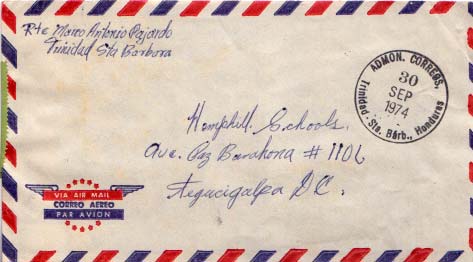 Rte Marco Antonio Pajardo
Trinidad Sta Barbara
ADMON. CORREOS,
30
SEP
1974
Trinidad, Sta. Bárb., Honduras
Hemphill Schools.
Ave. Paz Barahona # 1106
Tegucigalpa D.C.
VIA AIR MAIL
CORREO AEREO
PAR AVION